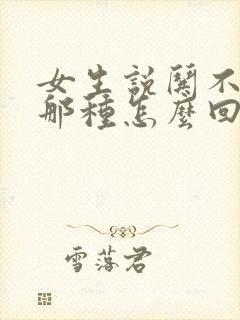 女生說鬨不
那種怎麼回
雪落君